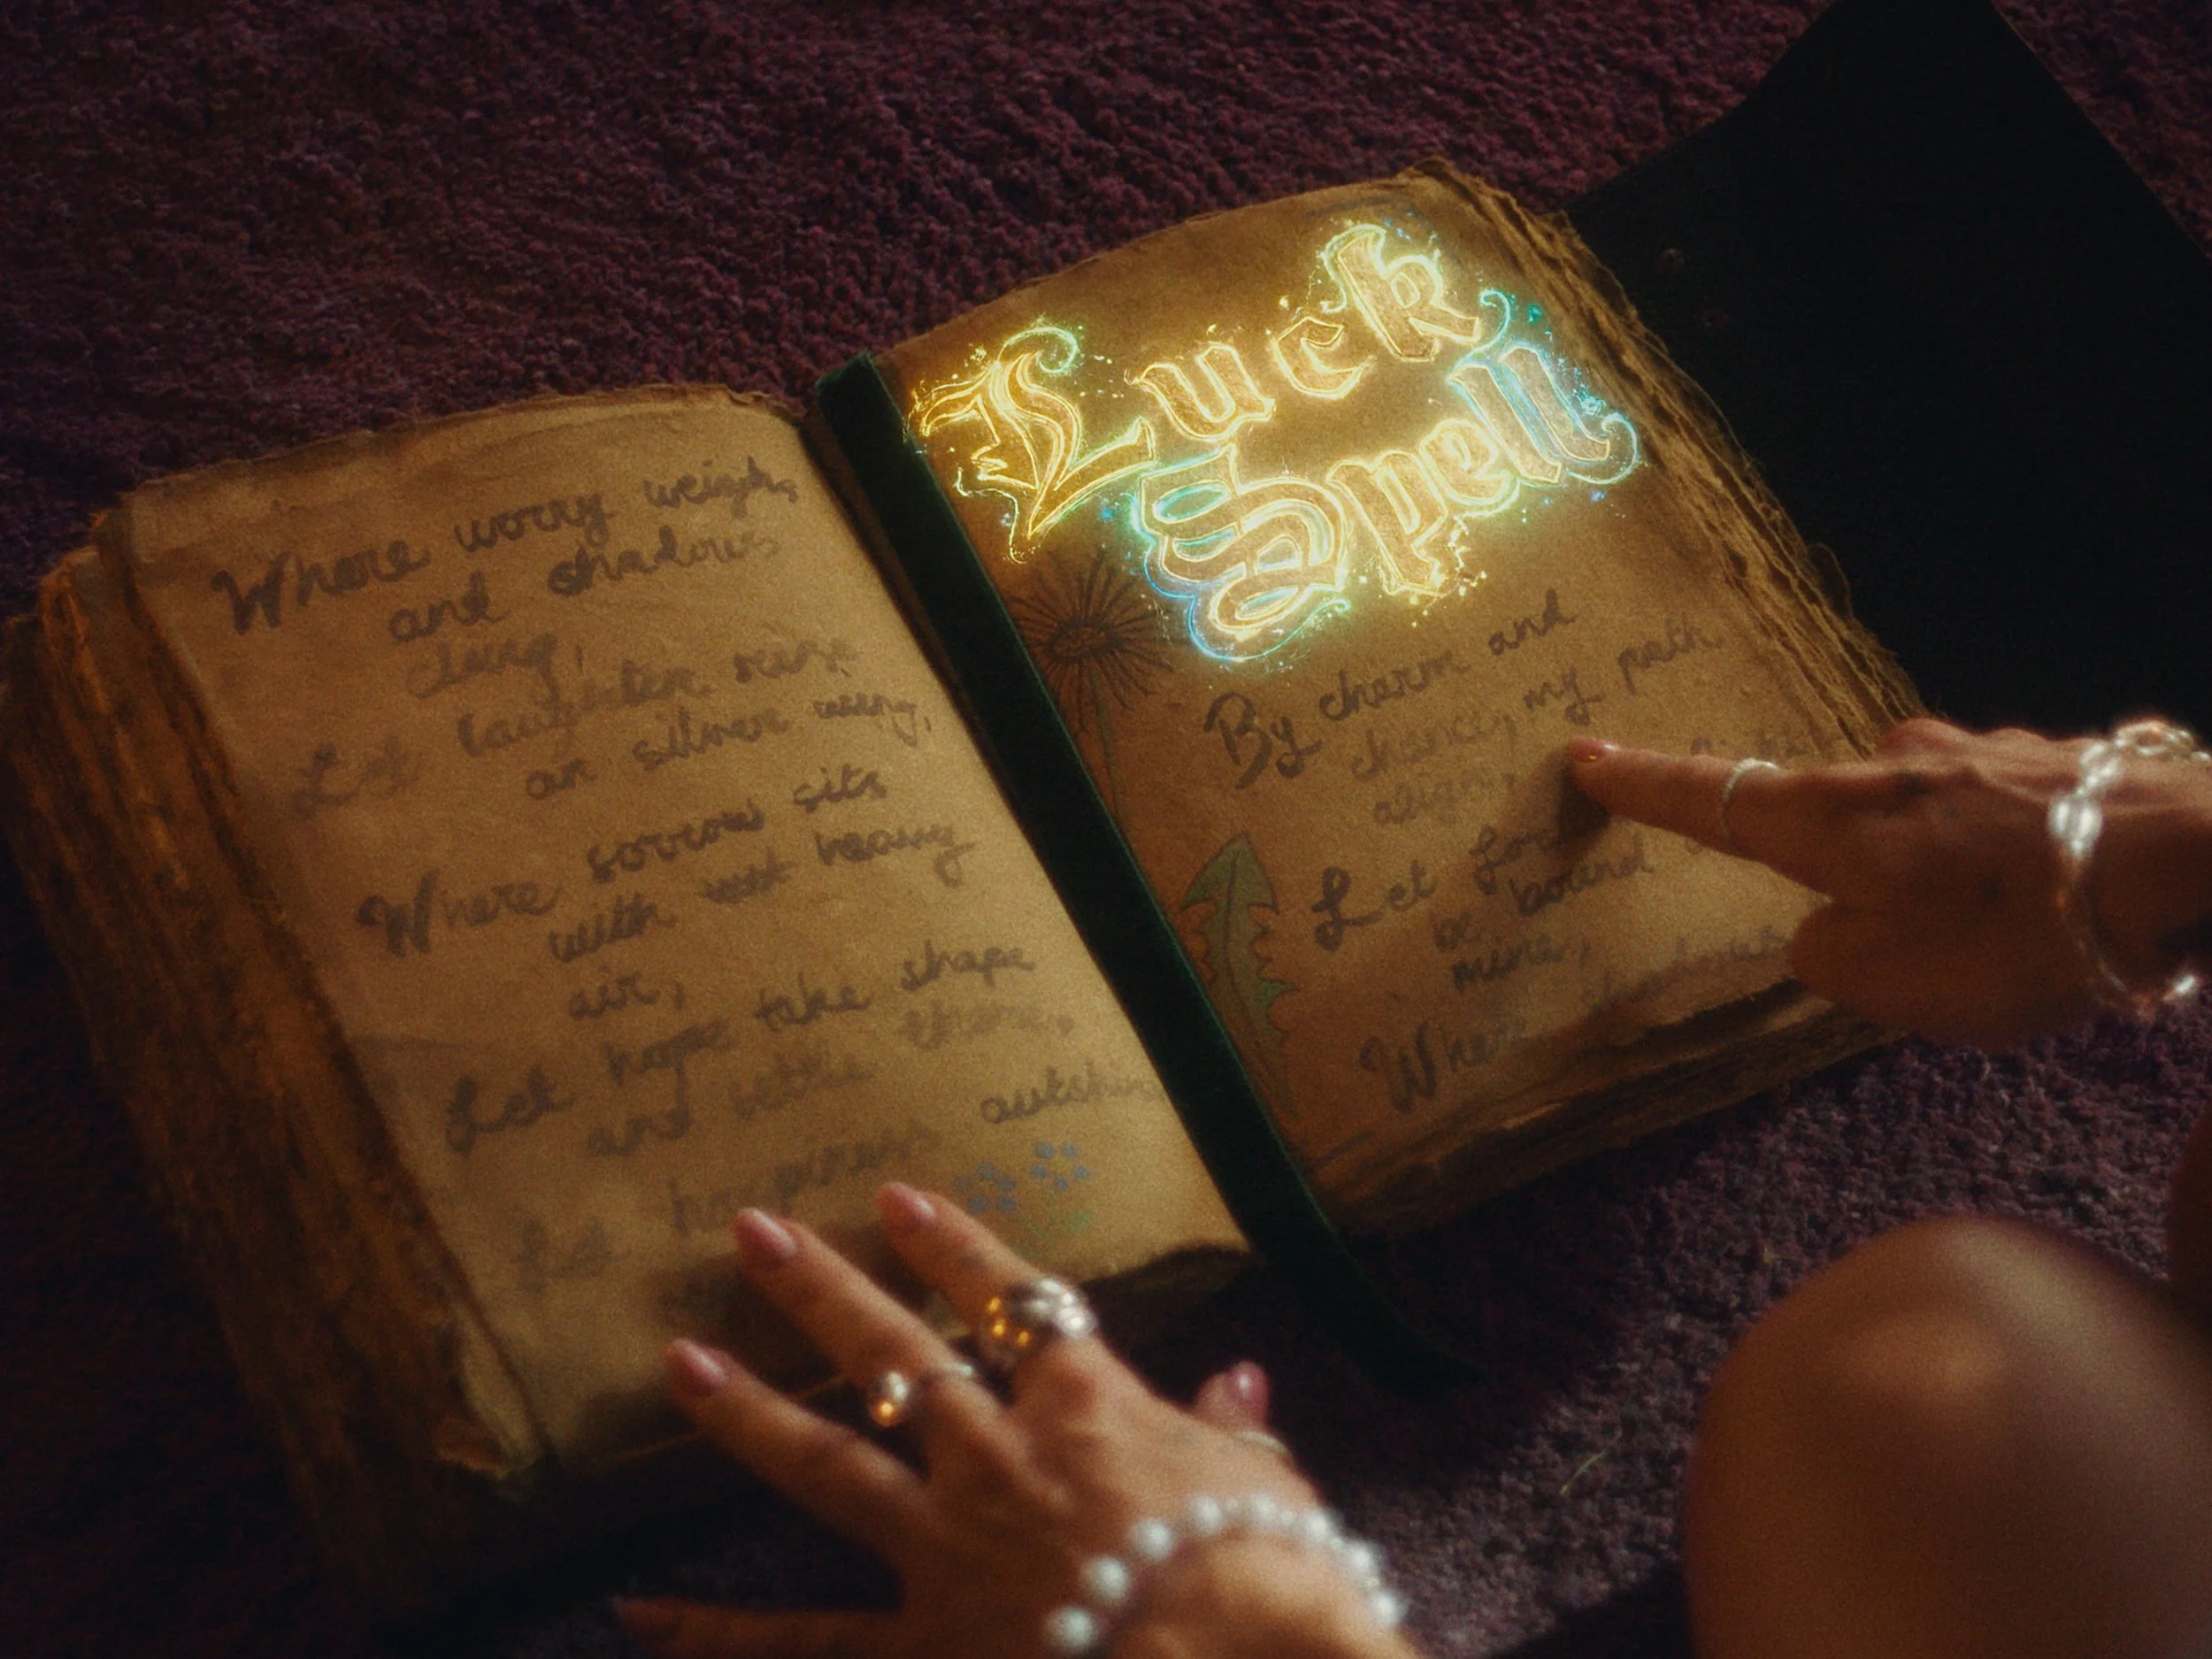 Where worry weighs
and shadows
clung,
Let laughter raise
on silver wing,
Where sorrow sits
with heavy
air,
Let hope take shape
and settle there,
Let happiness outshin
Luck
Spell
By charm and
chance, my path
align,
Let for
be bound
mine,
Where shadows